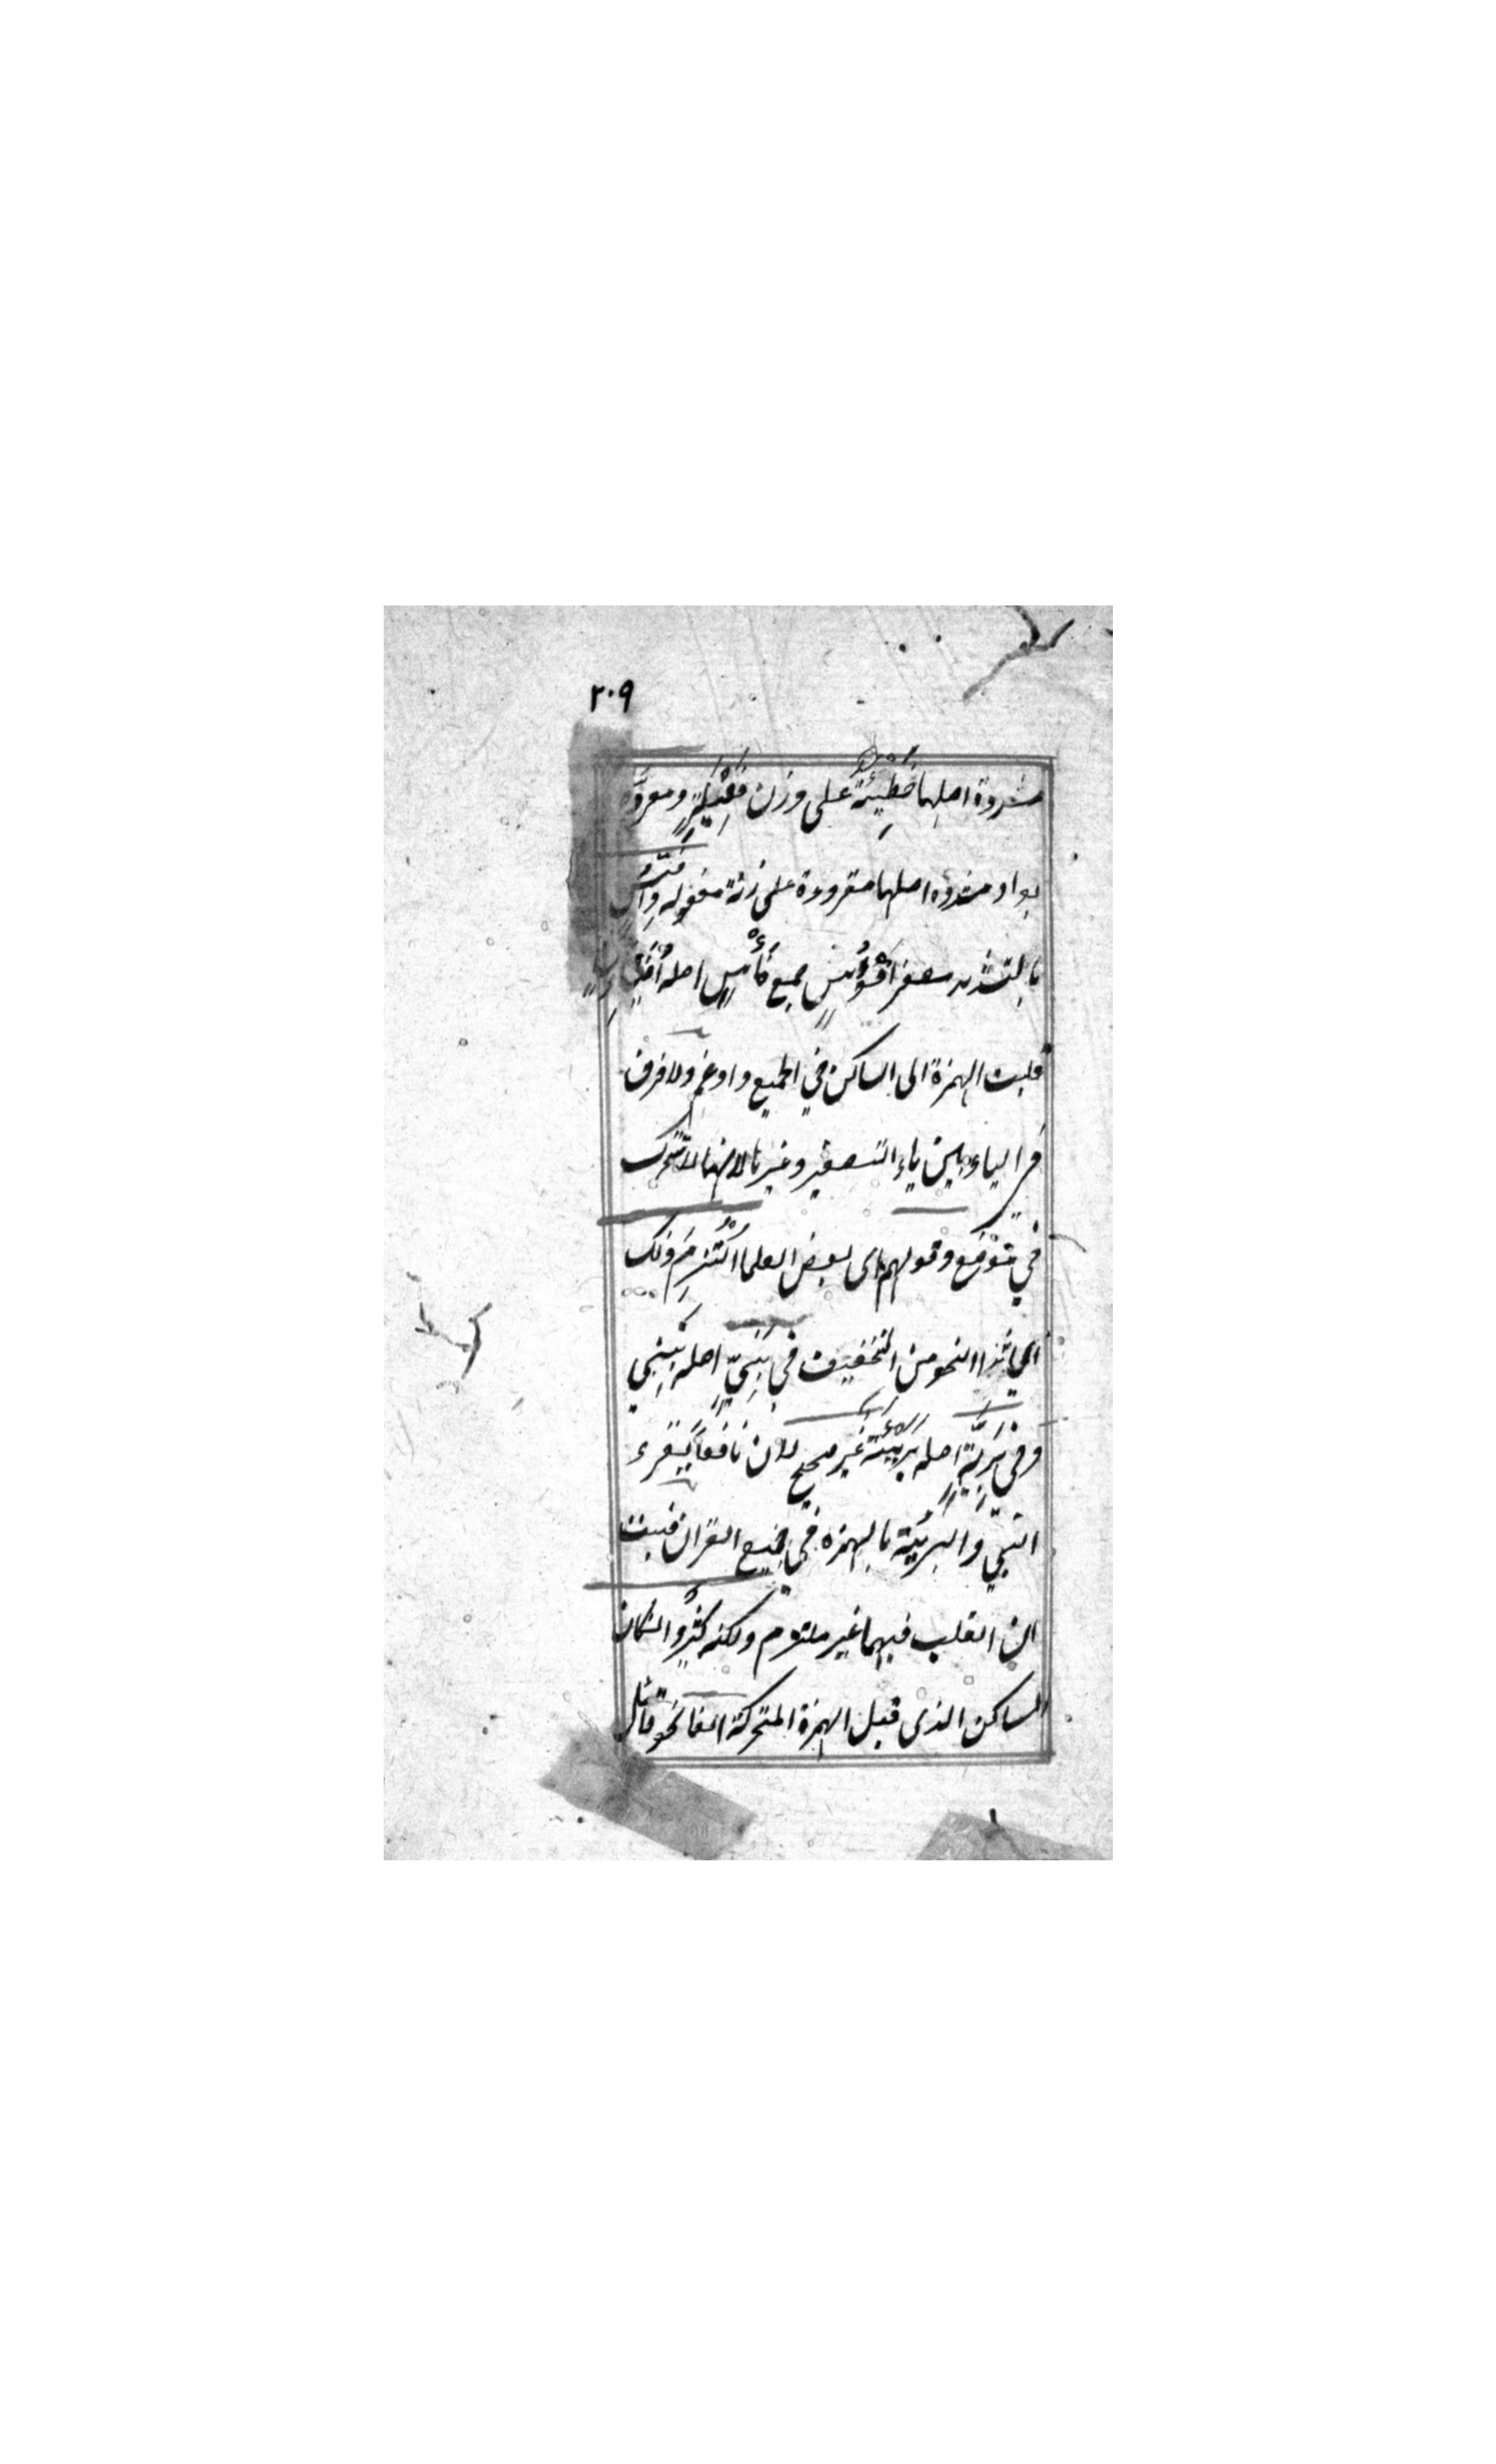 ٢٠٩
مشددة اصلها خَطِيئَة على وزن فَعِيْلَةٍ ومقروَّة
بواو مشدده اصلها مقروءة على زنة مفعوله
بالتشديد مصغر افؤُسٍ جمع فَأْسٍ اصله
قلبت الهمزة الى الساكن في الجميع وادغم ولا فرق
في الياء بين ياء التصغير وغيرها لانهما لا تتحرك
في موقع وقولهم اى بعض العلما اُلْتُزِمَ ذلك
اى هذا النحو من التخفيف في نَبِيٍّ اصله نبيئ
وفي بَرِيَّةٍ اصله بريئَة غير صحيح لان نافعاً يقرء
النبيّ والبريئة بالهمزه في جميع القران فثبت
ان القلب فيهما غير ملتزم ولكنه كثرٌ وان كان
الساكن الذى قبل الهمزة المتحركة الفا نحو قائل